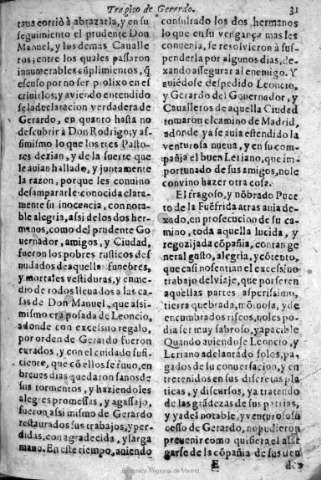 Tragico de Gerardo.
31
taua corrió à abrazarla, y en su
seguimiento el prudente Don
Manuel, y los demas Caualle
ros; entre los quales passaron
innumerables cūplimientos, q̃
escuso por no ser prolixo en el
criuirlos, y auiendo entendido
se la declaracion verdadera de
Gerardo, en quanto hasta no
descubrir à Don Rodrigo; y as-
simismo lo que los tres Pasto-
res dezian, y de la suerte que
le auian hallado, y juntamente
la razon, porque les conuino
desampararle: conocida clara-
mente su inocencia, con nota-
ble alegria, assi de los dos her-
manos, como del prudente Go
uernador, amigos, y Ciudad,
fueron los pobres rusticos des
nudados de aquellas funebres,
y mortales vestiduras, y en me-
dio de todos lleuados a las ca-
sas de Don Manuel, que assi-
mismo era posada de Leoncio,
adonde con excessiuo regalo,
por orden de Gerardo fueron
curados, y con el cuidado sufi-
ciente, que cō ellos se tuuo, en
breues dias quedaron sanos de
sus tormentos, y haziendoles
alegres promessas, y agassajo,
fueron assimismo de Gerardo
restaurados sus trabajos, y per-
didas, con agradecida, y larga
mano. En este tiempo, auiendo
consultado los dos hermanos
lo que en su vengança mas les
conuenia, se resoluieron à sus-
penderla por algunos dias, de-
xando assegurar al enemigo. Y
auiédose despedido Leoncio,
y Gerardo del Gouernador, y
Caualleros de aquella Ciudad
tomaron el camino de Madrid,
adonde ya se auia estendido la
venturosa nueua, y en su com-
pañia el buen Leriano, que im-
portunado de sus amigos, no le
conuino hazer otra cosa.
El fragoso, y nōbrado Puer
to de la Fuéfrida atras auia de-
xado, en prosecucion de su ca-
mino, toda aquella lucida, y
regozijada cōpañia, con tan ge
neral gusto, alegria, y cōtento,
que casi no sentian el excessiuo
trabajo del viaje, que por ser en
aquellas partes asperissimo,
tierra quebrada, mōtuosa, y de
encumbrados riscos, no les po-
dia ser muy sabroso, y apacible
Quando auiendose Leoncio, y
Leriano adelantado solos, pa-
gados de su conuersacion, y en
tretenidos en sus discretas pla
ticas, y discursos, ya tratando
de las grādezas de sus patrias,
y ya del notable, y venturoso su
cesso de Gerardo, no pudieron
preuenir como quisieran el alar
garse de la cōpañia de sus cria
E
dos